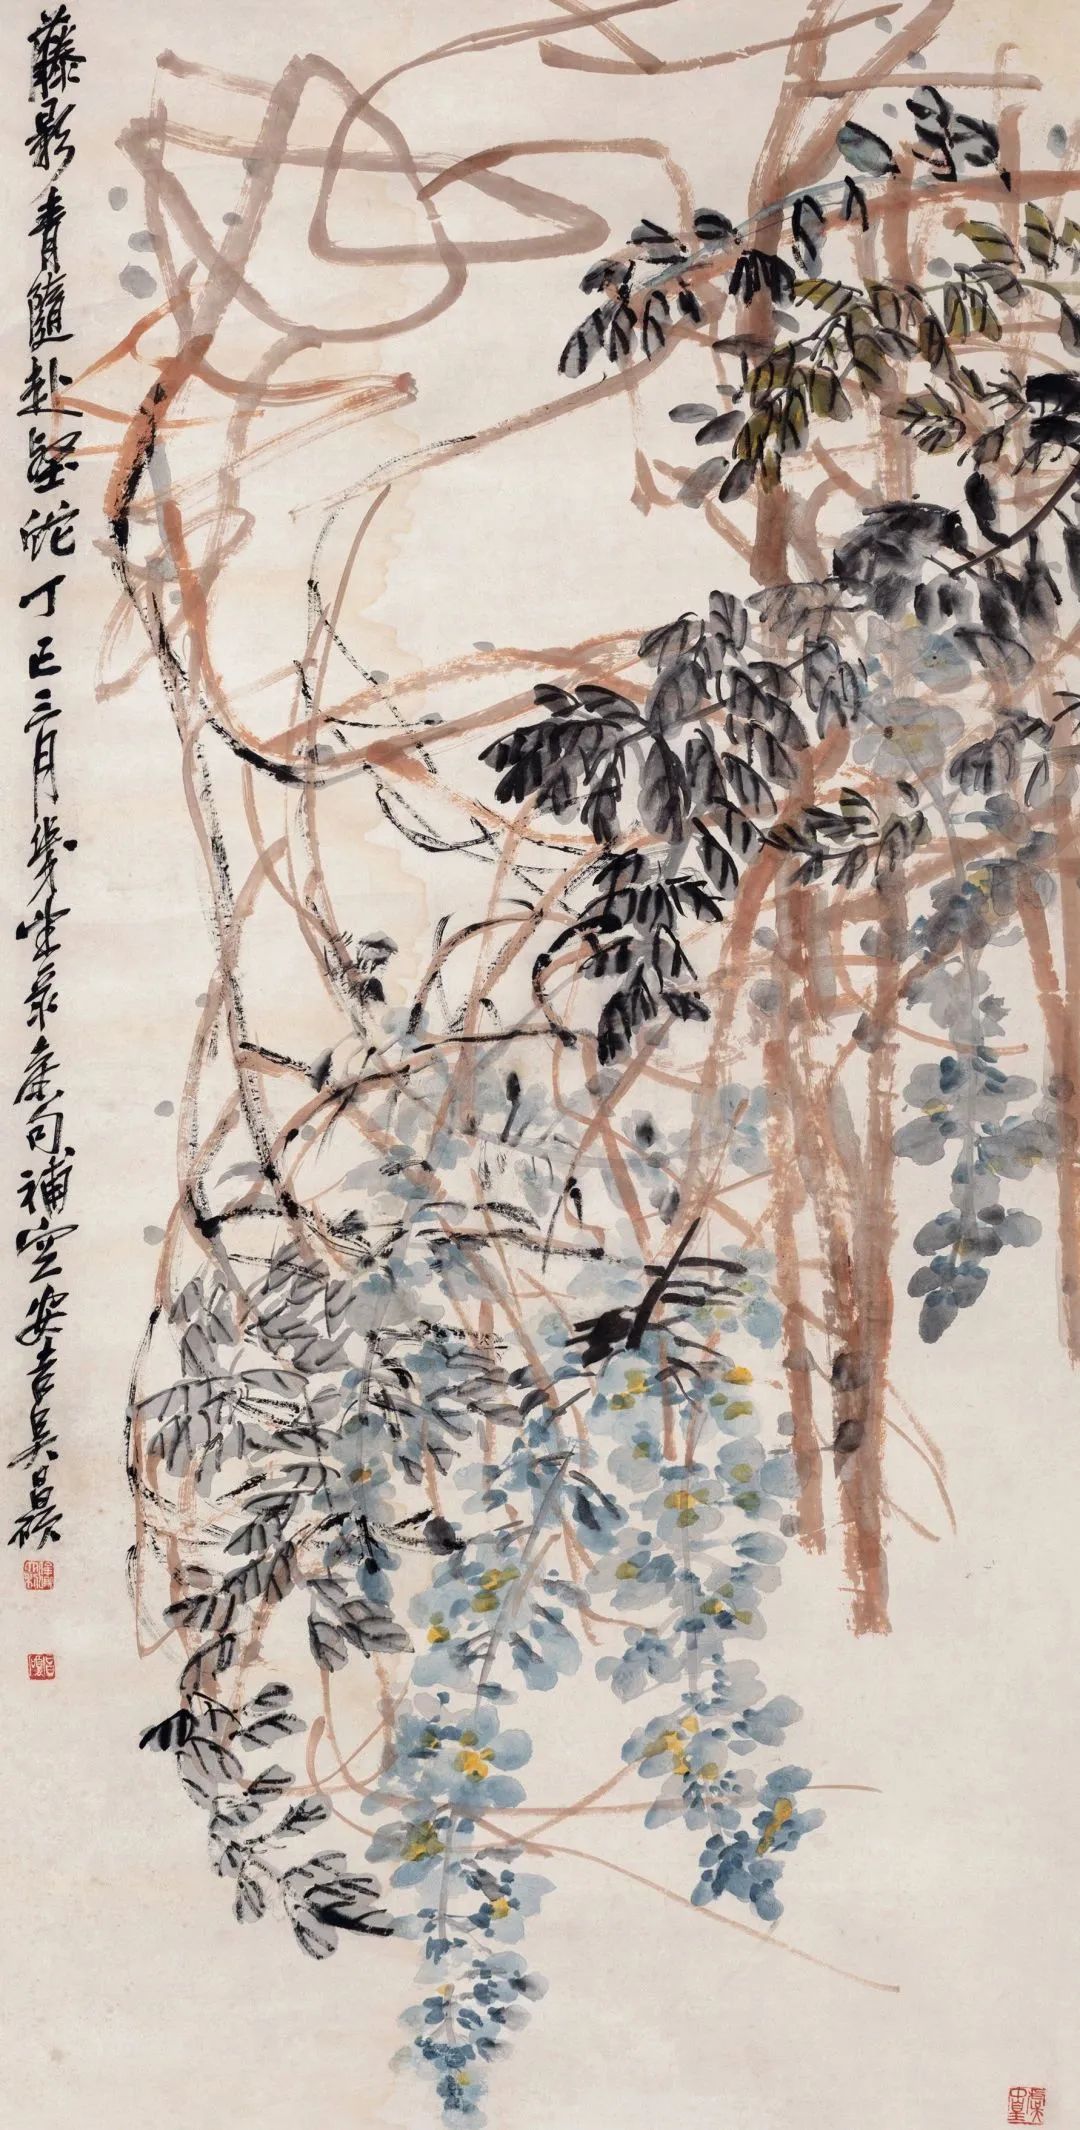 藤影青隨赴壑蛇丁巳三月幾望句補空安吉吳昌碩